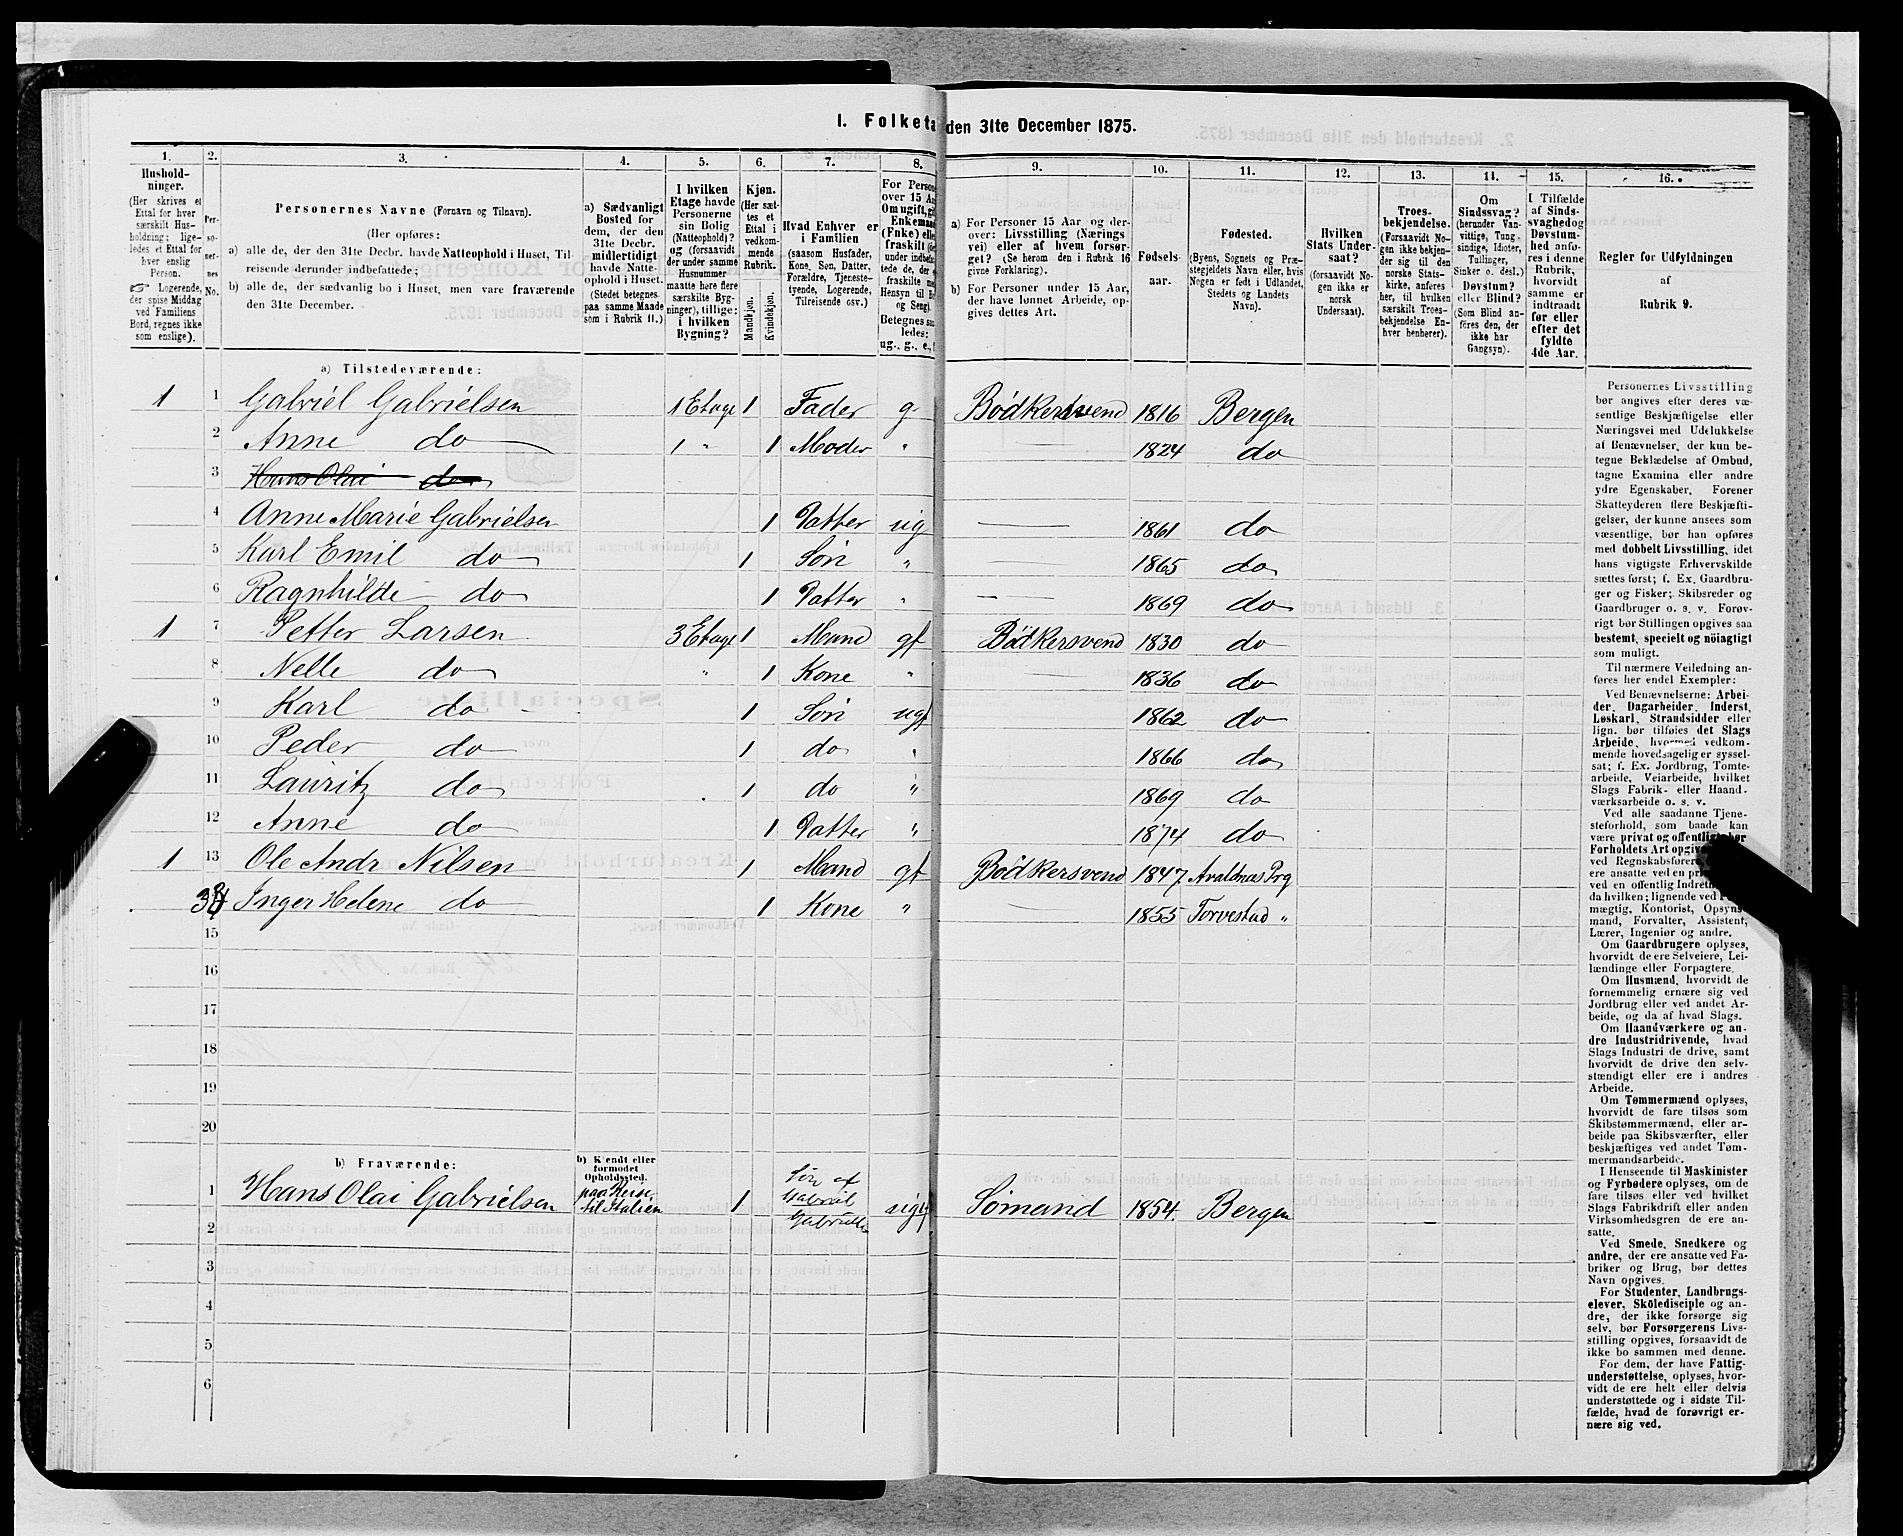 1. Folketa den 31te December 1875.
1. 2. 3. 4. 5. 6. 7. 8. 9. 10. 11. 12. 13. 14. 15. 16.
Hushold-
ninger.
(Her skrives et
Ettal for hver
særskilt Hus-
holdning; lige-
ledes et Ettal for
hver enslig
Person.
☞ Logerende,
der spise Middag
ved Familiens
Bord, regnes ikke
som enslige).
Per-
so-
ner-
nes
No.
Personernes Navne (Fornavn og Tilnavn).
(Her opføres:
a) alle de, der den 31te Decbr. havde Natteophold i Huset, Til-
reisende derunder indbefattede;
b) alle de, der sædvanlig bo i Huset, men vare fraværende
den 31te December.
a) Sædvanligt
Bosted for
dem, der den
31te Decbr.
midlertidigt
havde Natte-
ophold i Huset.
(Stedet betegnes
paa samme Maade
som i Rubrik 11.)
I hvilken
Etage havde
Personerne
sin Bolig
(Natteophold)?
og (forsaavidt
der under samme
Husnummer
maatte høre flere
særskilte Byg-
ninger), tillige:
i hvilken
Bygning?
Kjøn.
(Her sæt-
tes et
Ettal i
vedkom-
mende
Rubrik.
Mandkjøn.
Kvindekjøn.
Hvad Enhver er
i Familien
(saasom Husfader,
Kone, Søn, Datter,
Forældre, Tjeneste-
tyende, Logerende,
Tilreisende osv.)
For Person
over 15 Aa
Om ugift, gi
Enkemand
(Enke) elle
fraskilt
under indbefat
tede de, der
fraskilte
Hensyn til B
og Seng).
Betegnes saa
ledes:
ug., g., e.,
a) For Personer 15 Aar og der-
over: Livsstilling (Nærings
vei) eller af hvem forsør-
get? (Se herom den i Rubrik 16
givne Forklaring).
b) For Personer under 15 Aar,
der have lønnet Arbeide, op-
gives dettes Art.
Fødsels-
aar.
Fødested.
(Byens, Sognets og Præ-
stegjeldets Navn eller, hvis
Nogen er født i Udlandet,
Stedets og Landets
Navn).
Hvilken
Stats Under-
saat?
(forsaavidt No-
gen ikke er
norsk
Undersaat).
Troes-
bekjendelse.
(Forsaavidt No-
gen ikke bekjen-
der sig til den
norske Stats-
kirke, anføres
her, til hvilken
særskilt Troes-
bekjendelse En-
hver henhører).
Om
Sindssvag?
(herunder Van-
vittige, Tung-
sindige, Idioter,
Tullinger,
Sinker o. desl.)
Døvstum?
eller Blind?
(Som Blind an-
føres den, der
ikke har
Gangsyn).
I Tilfælde
af Sinds-
svaghed og
Døvstum-
hed anfø-
res i denne
Rubrik,
hvorvidt
samme er
indtraadt
før eller
efter det
fyldte
4de Aar.
Regler for Udfyldningen
af
Rubrik 9.
a) Tilstedeværende:
1 1 Gabriel Gabrielsen 1 Etage 1 Fader g. Bödkersvend 1816 Bergen
2 Anne do 1 " 1 Moder " 1824 do
3 Hans Olai do
4 Anne Marie Gabrielsen 1 Datter ug 1861 do
5 Karl Emil do 1 Sön " 1865 do
6 Ragnhilde do 1 Datter " 1869 do
1 7 Petter Larsen 3 Etage 1 Mand gf Bödkersvend 1830 do
8 Nelle do " 1 Kone " 1836 do
9 Karl do 1 Sön ugf 1862 do
10 Peder do 1 do " 1866 do
11 Lauritz do 1 do " 1869 do
12 Anne do 1 Datter " 1874 do
1 13 Ole Andr Nilsen 1 Mand gf Bödkersvend 1847. Avaldnæs Prg
Inger Helene do 1 Kone " 1855 Torvestad "
15
16
17
18
19
20
b) Fraværende:
b) Kjendt eller
formodet
Opholdssted.
1 Hans Olai Gabrielsen paa Reise til Italien 1 Sön af Gabriel ugf Sömand 1854. Bergen
2
3
4
5
6
Personernes Livsstilling
bør angives efter deres væ-
sentlige Beskjæftigelse eller
Næringsvei med Udelukkelse
af Benævnelser, der kun be-
tegne Beklædelse af Ombud,
tagne Examina eller andre
ydre Egenskaber. Forener
Skatteyderen flere Beskjæfti-
gelser, der kunne ansees som
væsentlige, bør han opføres
med dobbelt Livsstilling, idet
hans vigtigste Erhvervskilde
sættes først; f. Ex. Gaardbru-
ger og Fisker; Skibsreder og
Gaardbruger o. s. v. Forøv-
rigt bør Stillingen opgives saa
bestemt, specielt og nöiagtigt
som muligt.
Til nærmere Veiledning an-
føres her endel Exempler:
Ved Benævnelserne: Arbei-
der, Dagarbeider, Inderst,
Løskarl, Strandsidder eller
lign. bør tilføies det Slags
Arbeide, hvormed vedkom-
mende hovedsagelig er syssel-
sat; f. Ex. Jordbrug, Tomte-
arbeide, Veiarbeide, hvilket
Slags Fabrik- eller Haand-
værksarbeide o. s. v.
Ved alle saadanne Tjene-
steforhold, som baade kan
være privat og offentligt, bør
Forholdets Art opgiv
ved Regnskabsfører
ere ansatte ved en pri
ved en offentlig Indretn
da hvilken; lignende ved
mægtig, Kontorist, Opsyns-
mand, Forvalter, Assistent,
Lærer, Ingeniør og andre.
Om Gaardbrugere oplyses,
hvorvidt de ere Selveiere, Lei-
lændinge eller Forpagtere.
Om Husmænd, hvorvidt de
fornemmelig ernære sig ved
Jordbrug eller ved andet Ar-
beide, og da af hvad Slags.
Om Haandværkere og an-
dre Industridrivende, hvad
Slags Industri de drive, samt
hvorvidt de drive den selv-
stændigt eller ere i andres
Arbeide.
Om Tømmermænd oplyses,
hvorvidt de fare tilsøs som
Skibstømmermænd, eller ar-
beide paa Skibsværfter, eller
beskjæftiges ved andet Tøm-
mermandsarbeide.
I Henseende til Maskinister
og Fyrbødere oplyses, om de
fare tilsøs eller ved hvilket
Slags Fabrikdrift eller anden
Virksomhedsgren de ere an-
satte.
Ved Smede, Snedkere og
andre, der ere ansatte ved Fa-
briker og Brug, bør dettes
Navn opgives.
For Studenter, Landbrugs-
elever, Skoledisciple og an-
dre, der ikke forsørge sig
selv, bør Forsørgerens Livs-
stilling opgives, forsaavidt de
ikke bo sammen med denne.
For dem, der have Fattig-
understøttelse, oplyses, hvor-
vidt de ere helt eller delvis
understøttede og i sidste Til-
fælde, hvad de forøvrigt er-
nære sig ved.